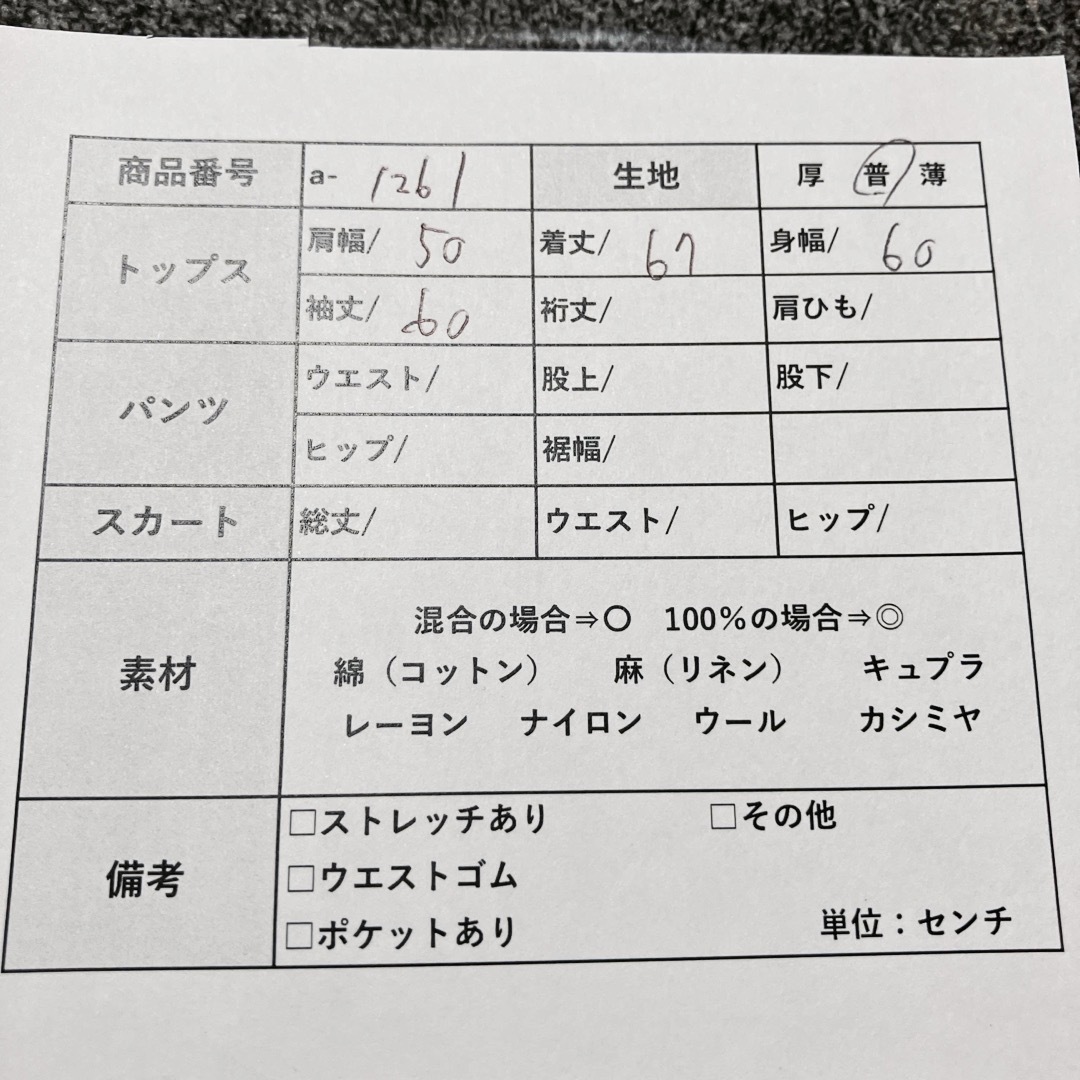 商品番号 a- 1261 生地 厚 普 薄
トップス 肩幅/ 50 着丈/ 67 身幅/ 60
袖丈/ 60 裄丈/ 肩ひも/
パンツ ウエスト/ 股上/ 股下/
ヒップ/ 裾幅/
スカート 総丈/ ウエスト/ ヒップ/
素材 混合の場合⇒〇 100%の場合⇒◎
綿（コットン） 麻（リネン） キュプラ
レーヨン ナイロン ウール カシミヤ
備考 □ストレッチあり □その他
□ウエストゴム
□ポケットあり 単位：センチ